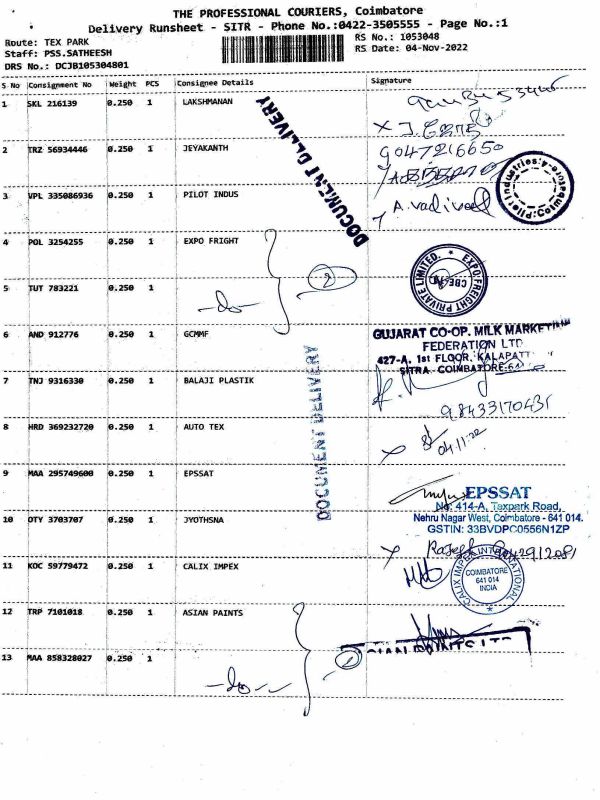 THE PROFESSIONAL COURIERS, Coimbatore
Delivery Runsheet - SITR - Phone No.:0422-3505555 - Page No.:1
Route: TEX PARK
RS No.: 1053048
Staff: PSS.SATHEESH
RS Date: 04-Nov-2022
DRS No.: DCJB105304801
S No Consignment No Weight PCS Consignee Details Signature
1 SKL 216139 0.250 1 LAKSHMANAN
2 TRZ 56934446 0.250 1 JEYAKANTH
9047216650
3 VPL 335086936 0.250 1 PILOT INDUS
A. Vadivel
DOCUMENT DELIVERY
4 POL 3254255 0.250 1 EXPO FRIGHT
EXPO FREIGHT PRIVATE LIMITED.
CBE
5 TUT 783221 0.250 1
-do-
2
6 AND 912776 0.250 1 GCMMF
GUJARAT CO-OP. MILK MARKETING
FEDERATION LTD
427-A, 1st FLOOR, KALAPATT
SITRA, COIMBATORE-641
7 TNJ 9316330 0.250 1 BALAJI PLASTIK
9843317043
8 HRD 369232720 0.250 1 AUTO TEX
04.11.22
DOCUMENT DELIVERY
9 MAA 295749600 0.250 1 EPSSAT
EPSSAT
No: 414-A, Texpark Road,
Nehru Nagar West, Coimbatore - 641 014.
GSTIN: 33BVDPC0556N1ZP
10 OTY 3703707 0.250 1 JYOTHSNA
Rajesh
11 KOC 59779472 0.250 1 CALIX IMPEX
CALIX IMPEX INTERNATIONAL
COIMBATORE
641 014
INDIA
12 TRP 7101018 0.250 1 ASIAN PAINTS
ASIAN PAINTS LTD
13 MAA 858328027 0.250 1
-do-
2